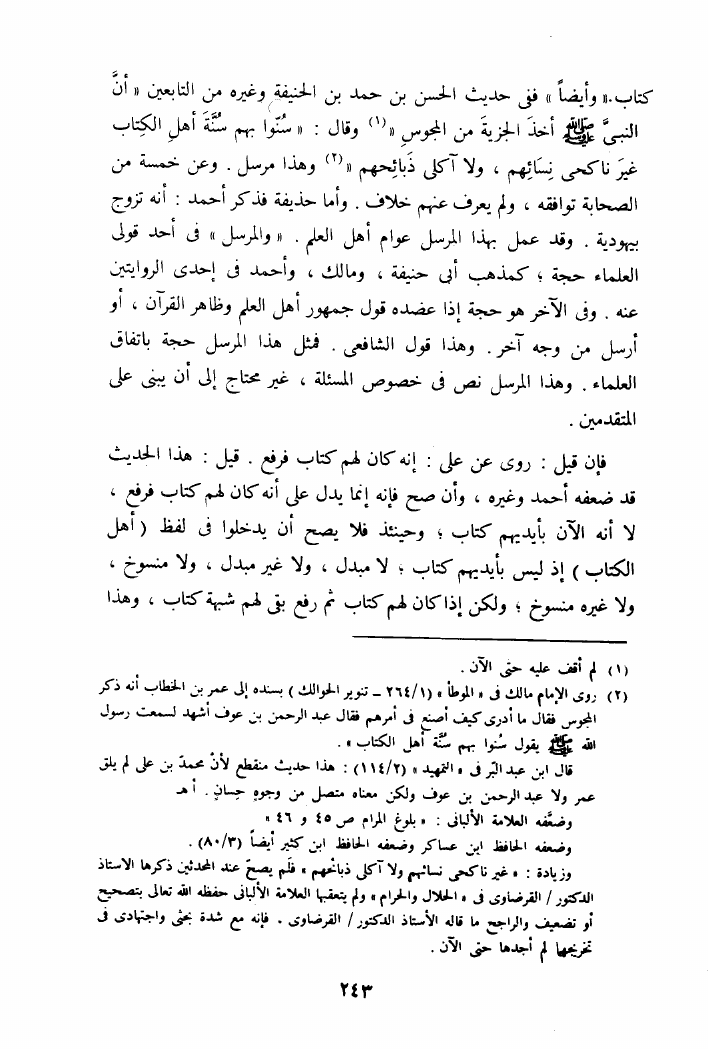 كتاب.« وأيضاً » ففى حديث الحسن بن حمد بن الحنيفة وغيره من التابعين « أنَّ
النبىَّ ﷺ أخذَ الجزيةَ من المجوسِ »(١) وقال : « سُنّوا بهم سُنَّةَ أهلِ الكتاب
غيرَ ناكحى نِسَائِهم ، ولا آكلى ذَبائِحهم »(٢) وهذا مرسل . وعن خمسة من
الصحابة توافقه ، ولم يعرف عنهم خلاف . وأما حذيفة فذكر أحمد : أنه تزوج
بيهودية . وقد عمل بهذا المرسل عوام أهل العلم . « والمرسل » فى أحد قولى
العلماء حجة ؛ كمذهب أبى حنيفة ، ومالك ، وأحمد فى إحدى الروايتين
عنه . وفى الآخر هو حجة إذا عضده قول جمهور أهل العلم وظاهر القرآن ، أو
أرسل من وجه آخر . وهذا قول الشافعى . فمثل هذا المرسل حجة باتفاق
العلماء . وهذا المرسل نص فى خصوص المسئلة ، غير محتاج إلى أن يبنى على
المتقدمين .
فإن قيل : روى عن على : إنه كان لهم كتاب فرفع . قيل : هذا الحديث
قد ضعفه أحمد وغيره ، وأن صح فإنه إنما يدل على أنه كان لهم كتاب فرفع ،
لا أنه الآن بأيديهم كتاب ؛ وحينئذ فلا يصح أن يدخلوا فى لفظ ( أهل
الكتاب ) إذ ليس بأيديهم كتاب ؛ لا مبدل ، ولا غير مبدل ، ولا منسوخ ،
ولا غيره منسوخ ؛ ولكن إذا كان لهم كتاب ثم رفع بقى لهم شبهة كتاب ، وهذا
(١) لم أقف عليه حتى الآن .
(٢) روى الإمام مالك فى « الموطأ » (٢٦٤/١ – تنوير الحوالك ) بسنده إلى عمر بن الخطاب أنه ذكر
المجوس فقال ما أدرى كيف أصنع فى أمرهم فقال عبد الرحمن بن عوف أشهد لسمعت رسول
الله ﷺ يقول سُنوا بهم سُنَّة أهل الكتاب » .
قال ابن عبد البّر فى « التمهيد » (١١٤/٢) : هذا حديث منقطع لأنْ محمدَ بن على لم يلق
عمر ولا عبد الرحمن بن عوف ولكن معناه متصل من وجوهٍ حِسانٍ . أ هـ
وضعَّفه العلامة الألبانى : « بلوغ المرام ص ٤٥ و ٤٦ »
وضعفه الحافظ ابن عساكر وضعفه الحافظ ابن كثير أيضاً (٨٠/٣) .
وزيادة : « غير ناكحى نسائهم ولا آكلى ذبائحهم » فلَم يصحّ عند المحدثين ذكرها الاستاذ
الدكتور / القرضاوى فى « الحلال والحرام » ولم يتعقبها العلامة الألبانى حفظه الله تعالى بتصحيح
أو تضعيف والراجح ما قاله الأستاذ الدكتور / القرضاوى . فإنه مع شدة بحثى واجتهادى فى
تخريجها لم أجدها حتى الآن .
٢٤٣